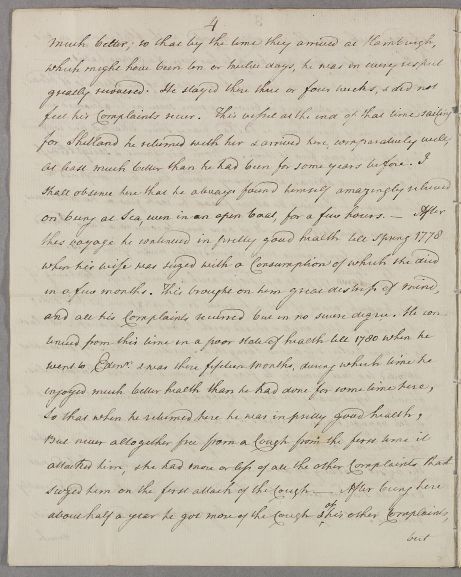 4
much better; so that by the time they arrived at Hamburgh,
which might have been ten or twelve days, he was in every respect
greatly recovered. He stayed there three or four weeks, & did not
feel his Complaints recur. This vessel at the end of that time sailing
for Shetland he returned with her & arrived here, comparatively well,
at least much better than he had been for some years before. I
shall observe here that he always found himself amazingly relieved
on being at Sea, even in an open boat, for a few hours. — After
this voyage he continued in pretty good health till Spring 1778
when his wife was seized with a Consumption of which she died
in a few months. This brought on him great distress of mind,
and all his Complaints recurred but in no severe degree. He con-
tinued from this time in a poor state of health till 1780 when he
went to Edinr. & was there fifteen months, during which time he
enjoyed much better health than he had done for some time here,
So that when he returned here he was in pretty good health,
But never altogether free from a Cough from the first time it
attacked him, & he had more or less of all the other Complaints that
seized him on the first attack of the Cough — After being here
about half a year he got more of the Cough & of his other Complaints,
but